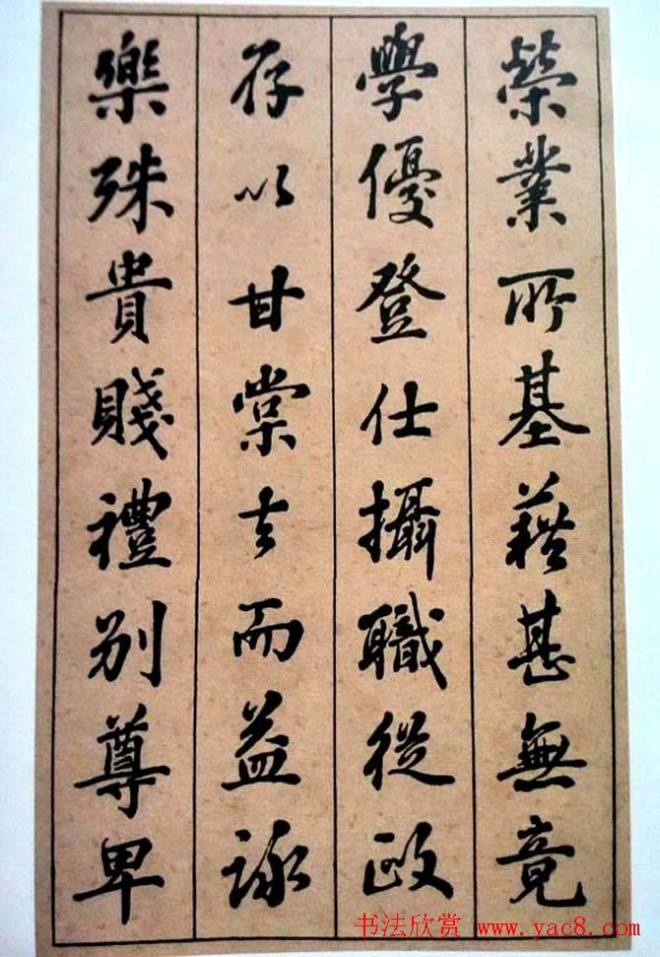 榮業所基藉甚無竟
學優登仕攝職從政
存以甘棠去而益詠
樂殊貴賤禮別尊卑
书法欣赏 www.yac8.com